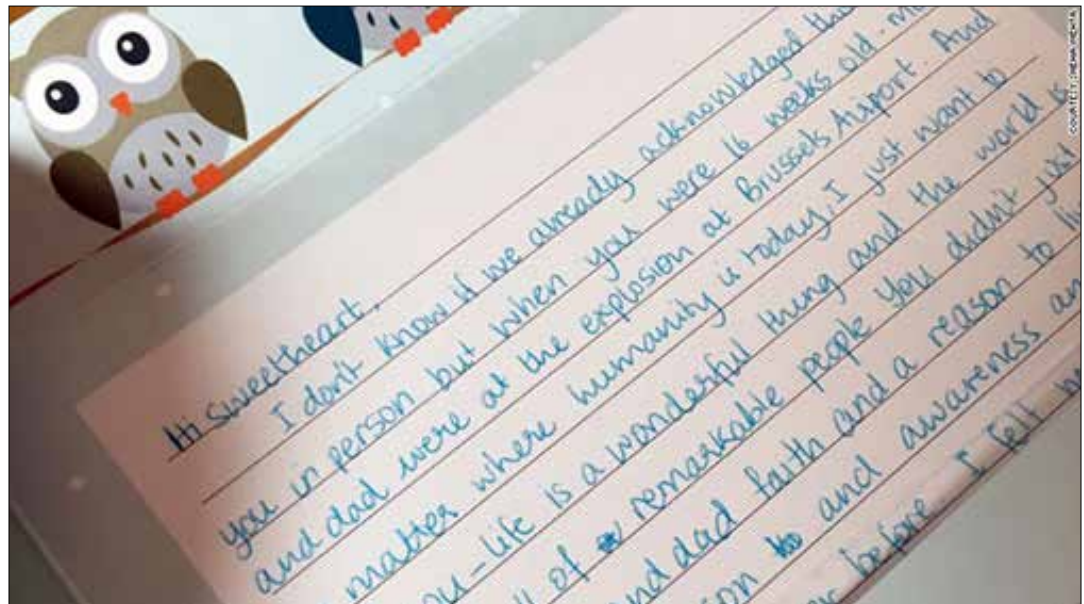 Hi sweetheart,
I don't know if we already acknowledged
you in person but when you were 16 weeks old.
and dad were at the explosion at Brussels Airport. And
matter where humanity is today, I just want to
life is a wonderful thing and the world is
of remarkable people you didn't just
dad faith and a reason to
and awareness
before. I felt
COURTESY SNEHA MEHTA